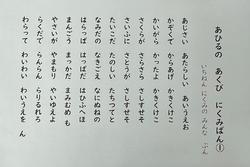 あひるの あくび にくみばん①
いちねん にくみの みんな ぶん
あじさい あたらしい あいうえお
かぞくで からあげ かきくけこ
かいがら かきくけこ
さくらが さらさら さしすせそ
さいふに さとうが さしすせそ
たいこだ たのしい たちつてと
なみだの なきごえ なにぬねの
はらっぱ はひふへほ
まんごう まっかだ まみむめ も
やさいが やまもり やいゆえよ
らくだで らんらん らりるれろ
わらって わいわい わいうえを ん